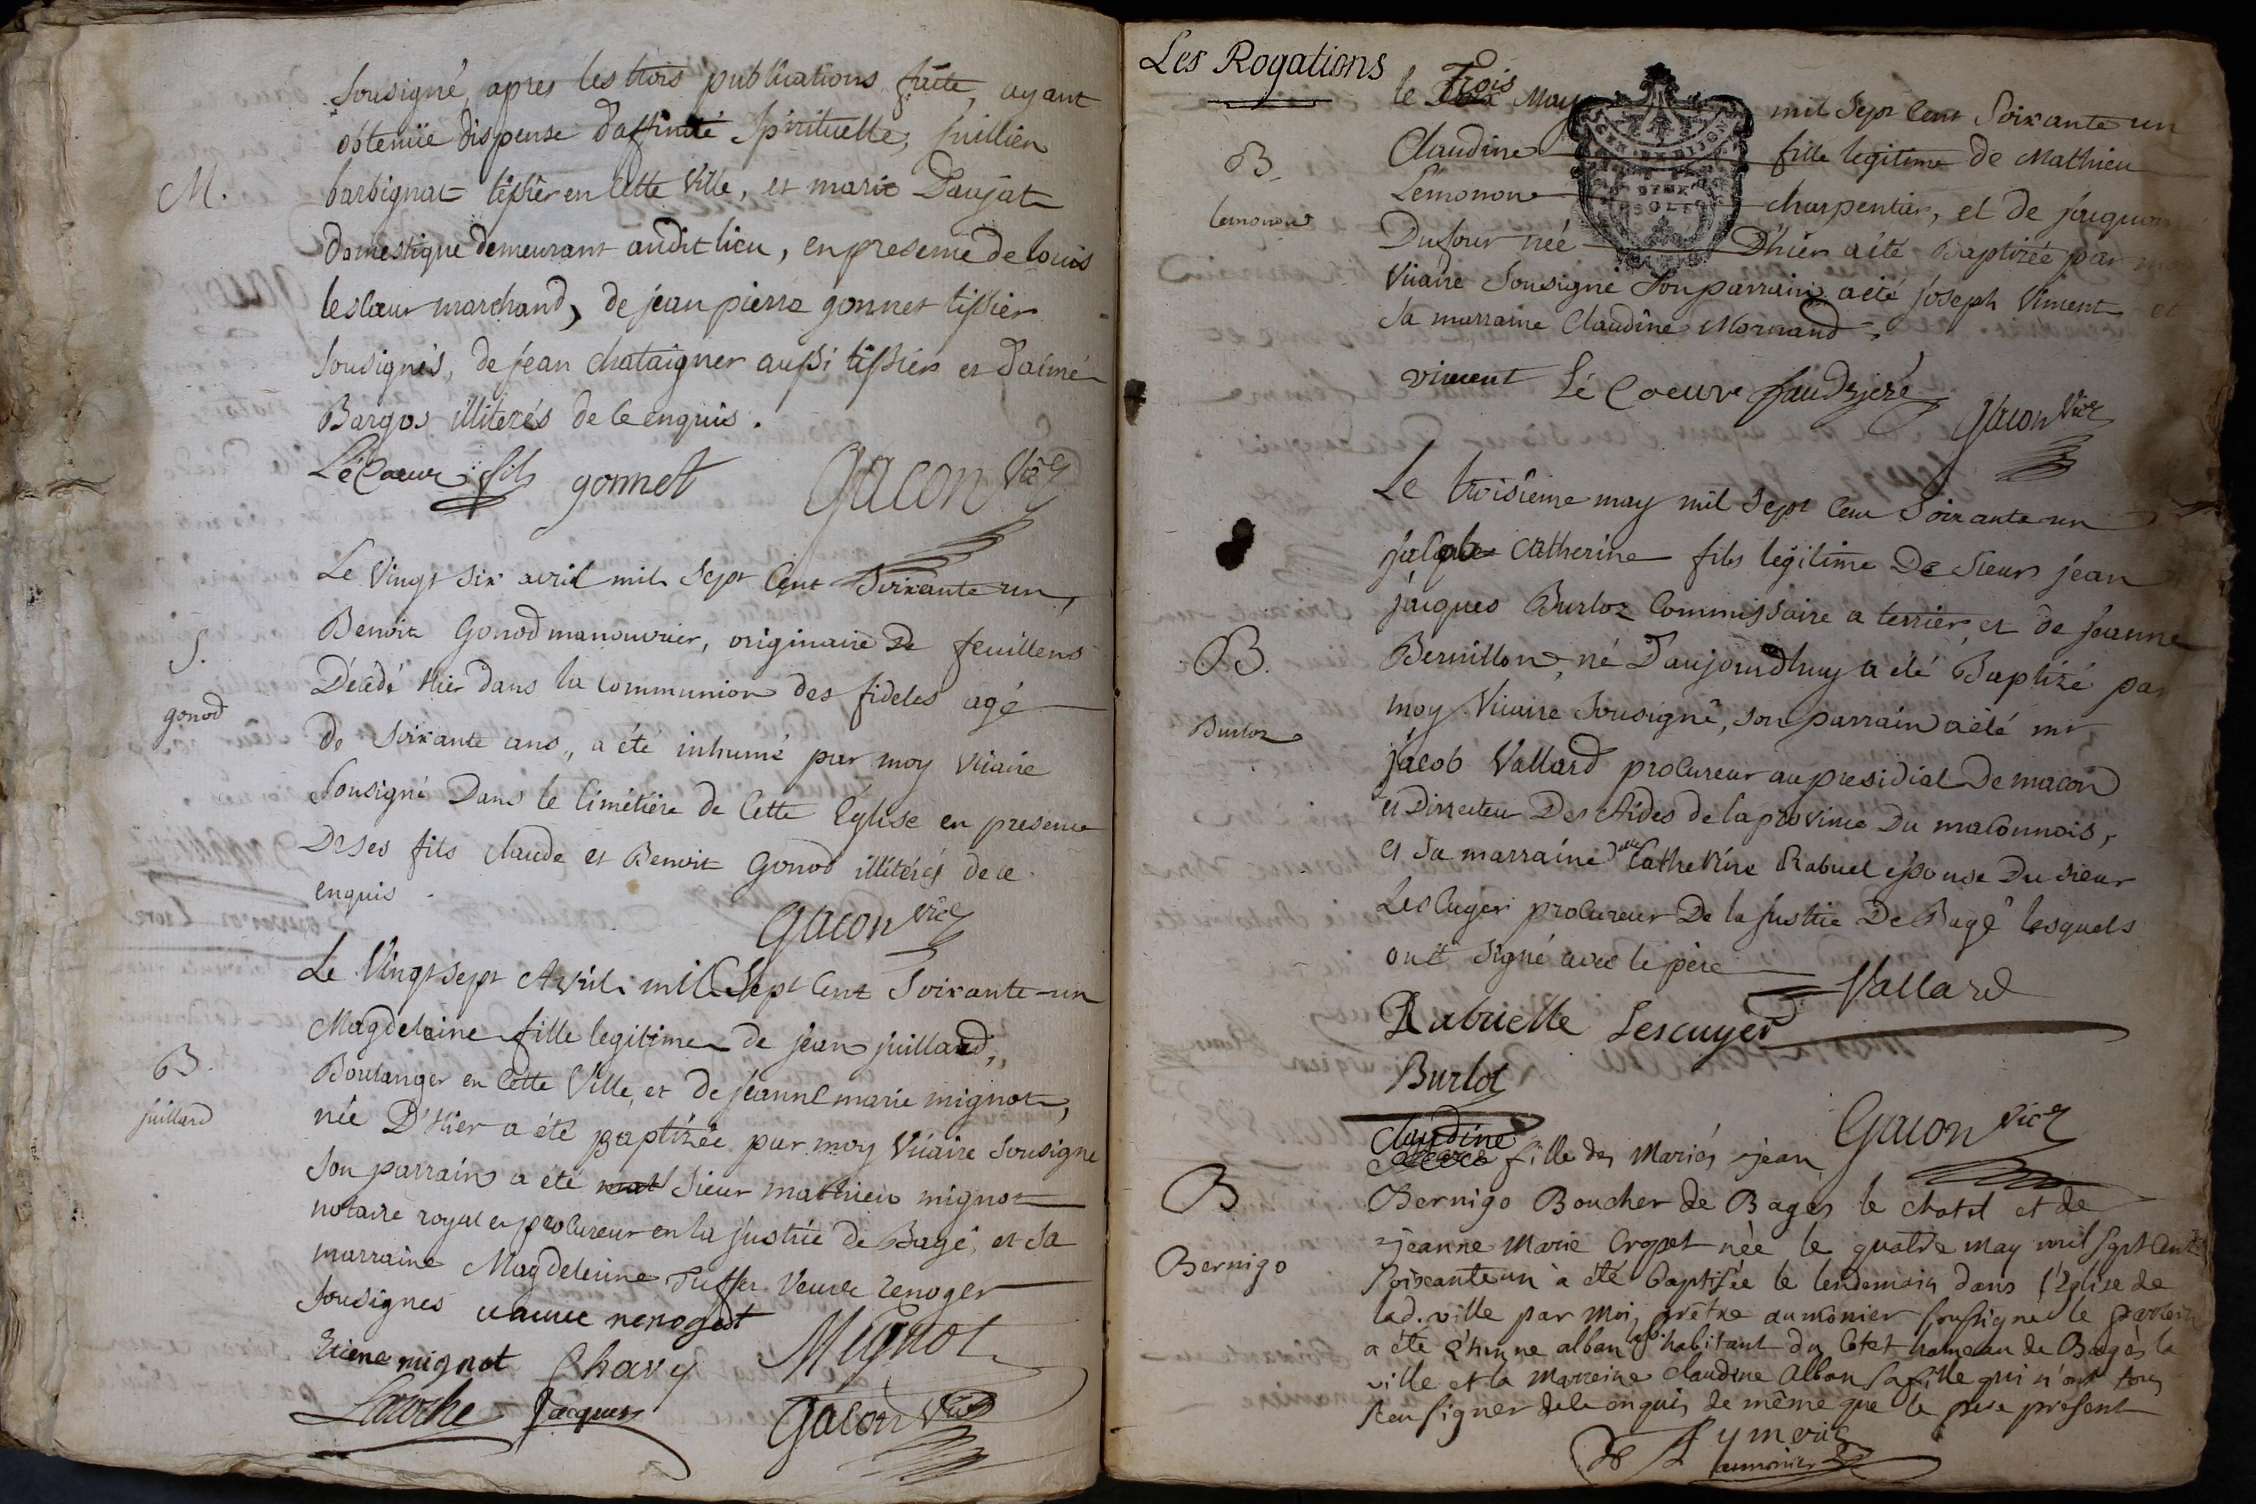 sousigné, apres les trois publications faite, ayant
obtenüe dispense d'affinité spirituelle, juillien
M.
barbignat tissier en cette ville, et marie Daujat
domestique demeurant audit lieu, en presence de louis
lescœur marchand, de jean pierre gonnet tissier
sousignés, de jean chataigner aussi tissier et d'aimé
Bargos illiterés de ce enquis.
Lécoeur fils gonnet Gacon Vic.
Le vingt six avril mil sept cent soixante un,
Benoit Gonod manouvrier, originaire de feuillens
S.
gonod
Décédé hier dans la communion des fideles agé
de soixante ans, a été inhumé par moy vicaire
sousigné Dans le cimétiére de cette Eglise en presence
De ses fils claude et Benoit Gonod illitérés de ce
enquis.
Gacon vic.
Le vingt sept Avril mil sept cent soixante un
Magdelaine fille legitime de jean juillard,
B.
juillard
Boulanger en cette ville, et de jeanne marie mignot,
née D'hier a été baptizée par moy vicaire sousigné
son parrain a été sieur mathieu mignot
notaire royal et procureur en la justice de Bagé, et sa
marraine Magdeleine Tuffer veuve renoger
sousignes veuve renoget
Mignot
mignot Chavy
Laroche Jacques Gacon Vic.
Les Rogations
le Trois May mil sept cent soixante un
B.
lemonon
Claudine fille legitime de Mathieu
Lemonon charpentier, et de jacquem
Dufour née D'hier a été Baptizée par moy
vicaire sousigné son parrain a été joseph vincent et
sa marraine Claudine Mornand.
vincent Lé Coeur
Gacon Vic.
Le troisieme may mil sept cent soixante un
jacob catherine fils legitime De sieur jean
jacques Burlot commissaire a terrier, et de jeanne
B.
Burlot
Bernillon, né D'aujourdhuy a été Baptizé par
moy vicaire sousigné, son parrain a été mr
jacob Vallard procureur au presidial De macon
et Directeur Des Aides de la province Du maconnois,
et sa marraine delle Catherine Rabuel épouse Du sieur
Lescuyer procureur De la justice De Bagé lesquels
ont signé avec le père
Vallard
Rabuelle Lescuyer
Burlot
Gacon vic.
Claudine fille des Mariés jean
B
Bernigo
Bernigo Boucher de Bagés le chatel et de
jeanne Marie Cropet née le quatre May mil sept cent
soixante un a été baptisée le lendemain dans l'Eglise de
lad. ville par moi prêtre aumônier soussigné le parrein
a été Etienne alban habitant du Cotet hameau de Bagès la
ville et la Marreine claudine Alban sa fille qui n'ont tous
sceu signer de ce enquis de même que le pere présent
Aymeric
aumônier